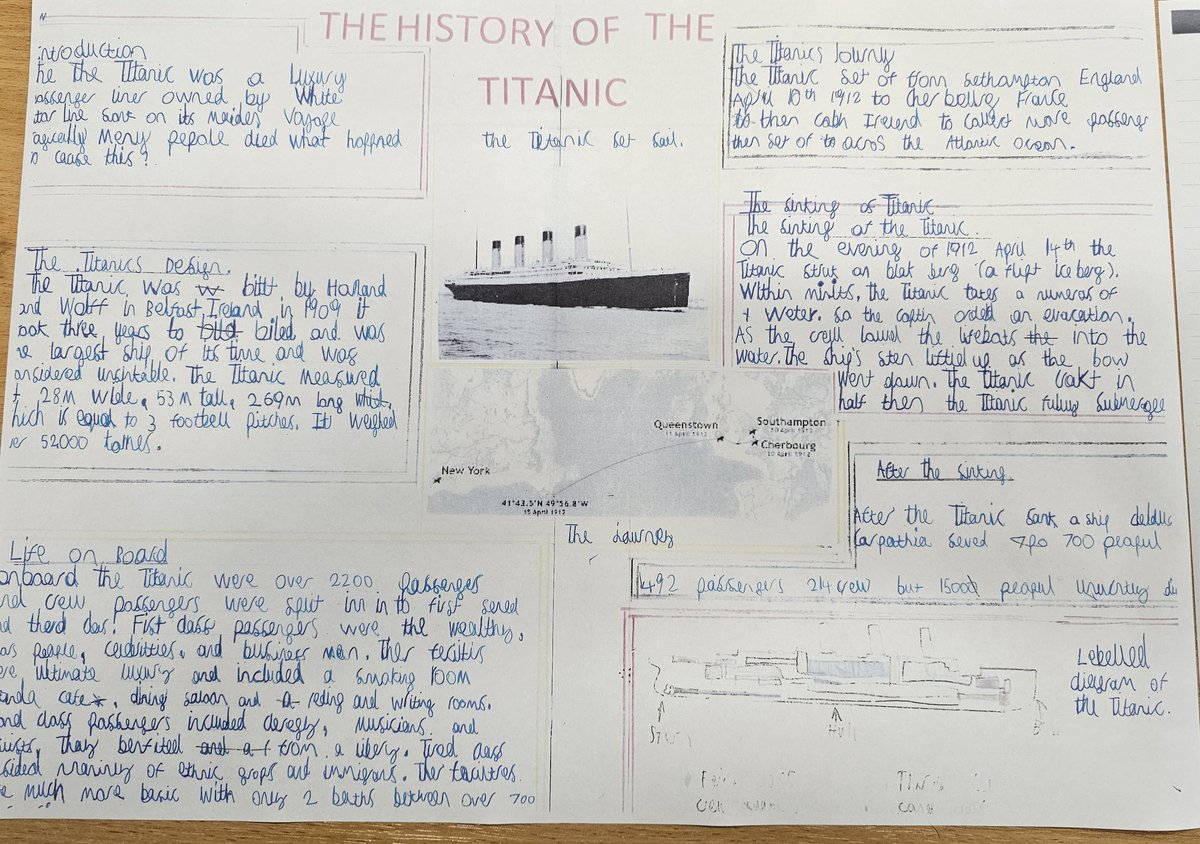 THE HISTORY OF THE
TITANIC
introduction
The the Titanic was a Luxury
assenger liner owned by White
tar line Sank on its maiden Voyage
Meny pepole died what happned
cause this?
The Titanics Design.
The Titanic was bilt by Harland
and Wolff in Belfast Ireland in 1909 it
ook three years to biled and was
e largest ship of its time and was
onsidered unsinkable. The Titanic measured
28m wide, 53m tall, 269m long which
hich is equal to 3 football pitches. It weighed
er 52000 tonnes.
Life on Board
onboard the Titanic were over 2200 passengers
nd crew passengers were split inn in to first second
d therd clas. First class passengers were the wealthy,
people, celebrities, and business men. Ther facilitis
ere ultimate luxury and included a smoking room
anda cafe, dining saloon and a reding and writing rooms.
ond class passengers included clergy, musicians and
They benfited and a f from a libery. Tired class
mainley of ethnic grops and immigrons. Ther facilitres
e much more basic with only 2 baths between over 700
the Titanic set sail.
New York
Queenstown
11 April 1912
Southampton
10 April 1912
Cherbourg
10 April 1912
41°43.5'N 49°56.8'W
15 April 1912
The Journey
The Titanics Journy
The Titanic set of from Sethampton England
April 10th 1912 to Cherbourg France
to then Ireland to collect more passenge
then set of to acros the Atlantic ocean.
The sinking of Titanic
The sinking of the Titanic.
On the evening of 1912 April 14th the
Titanic struk an blak berg (a flipt iceberg).
Within minits, the Titanic takes a numeras of
Water. So the captin orded an evacation.
As the lowed the the into the
water. The ship's stern lifted up as the bow
Went down. The Titanic in
half then the Titanic submerged
After the sinking
After the Titanic sank a ship
Carpathia saved 700
492 passengers 214 crew but 1500
Stern
Hull
Labelled
diagram of
the Titanic.